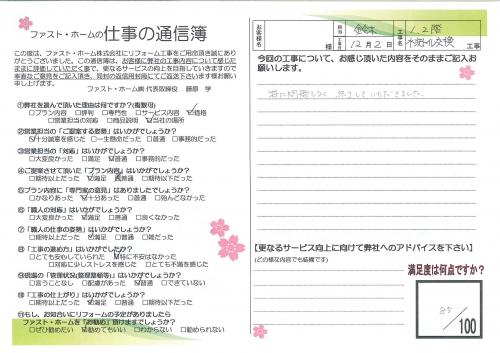 ファスト・ホームの仕事の通信簿
この度は、ファスト・ホーム株式会社にリフォーム工事をご用命頂き誠にあり
がとうございました。この通信簿は、お客様に弊社の工事内容について感じた
ままに評価していただく事で、更なるサービスの向上を目指していきますので
率直なご意見をご記入頂き、同封の返信用封筒にてご返送下さいます様お願い
申し上げます。
ファスト・ホーム㈱ 代表取締役 藤原 学
①弊社を選んで頂いた理由は何ですか?(複数可)
□プラン内容 □評判 □専門性 □サービス内容 ☑価格
□担当者の対応 □商品説明 ☑当社の場所
②営業担当の「ご提案する姿勢」はいかがでしょうか?
☑十分誠意を感じた □一生懸命だった □普通 □事務的だった
③営業担当の「対応」はいかがでしょうか?
□大変良かった □満足 ☑普通 □事務的だった
④ご提案させて頂いた「プラン内容」はいかがでしょうか?
□期待以上だった □満足 ☑普通 □期待以下だった
⑤プラン内容に「専門家の意見」はありましたでしょうか?
□かなりあった ☑十分あった □普通 □殆んどなかった
⑥「職人の対応」はいかがでしょうか?
□大変良かった ☑満足 □普通 □良くなかった
⑦「職人の仕事の姿勢」はいかがでしょうか?
□期待以上だった ☑満足 □普通 □雑だった
⑧「工事の進め方」はいかがでしたか?
□とても安心していられた ☑特に不安はなかった
□対応に少しストレスを感じた □とても不満を感じた
⑨現場の「管理状況(整理整頓等)」はいかがでしょうか?
□言うことなし □配慮があった ☑普通 □できていない
⑩「工事の仕上がり」はいかがでしょうか?
□期待以上だった ☑満足 □普通 □期待以下だった
⑪もし、お知合いにリフォームの予定がありましたら
ファスト・ホームを「お勧め」頂けますでしょうか?
□ぜひ勧めたい ☑勧めてもいい □わからない □勧められない
お客様名 鈴木 様 担当 工事日 12月2日 工事名 1.2階 トイレ交換 工事
今回の工事について、お感じ頂いた内容をそのままご記入お
願いします。
特に問題もなく 終了していただきました。
【更なるサービス向上に向けて弊社へのアドバイスを下さい】
(どの様な内容でも結構です)
満足度は何点ですか?
85
/100